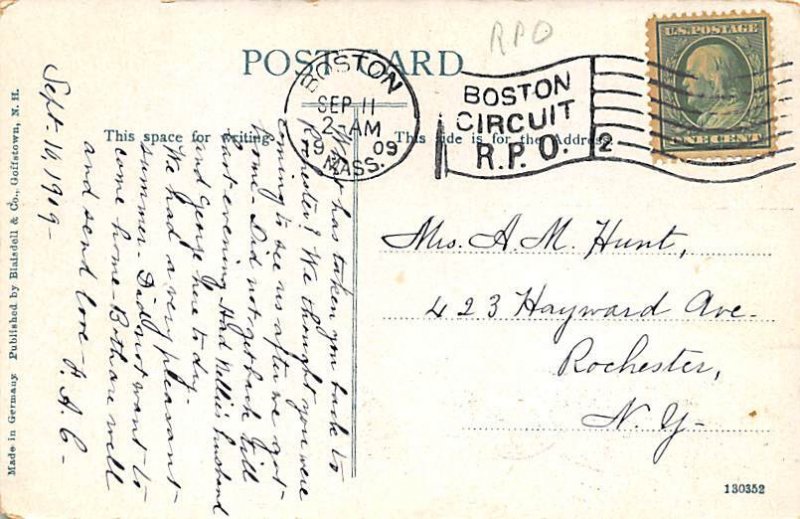 RPO
POST CARD
BOSTON
SEP 11
2-AM
19 09
MASS.
BOSTON
CIRCUIT
R.P.O.
2
U.S. POSTAGE
ONE CENT
This space for writing.
This side is for the Address.
Sept. 10, 1909-
What has taken you back to
Rochester? We thought you were
coming to see us after we got
home- Did not get back till
last evening. Had Nellie's husband
and George here to day.
We had a very pleasant
summer- Did not want to
come home- Both are well
and send love- A. A. C-
Mrs. A. M. Hunt,
423 Hayward Ave-
Rochester,
N. Y-
Made in Germany. Published by Blaisdell & Co., Goffstown, N. H.
130352